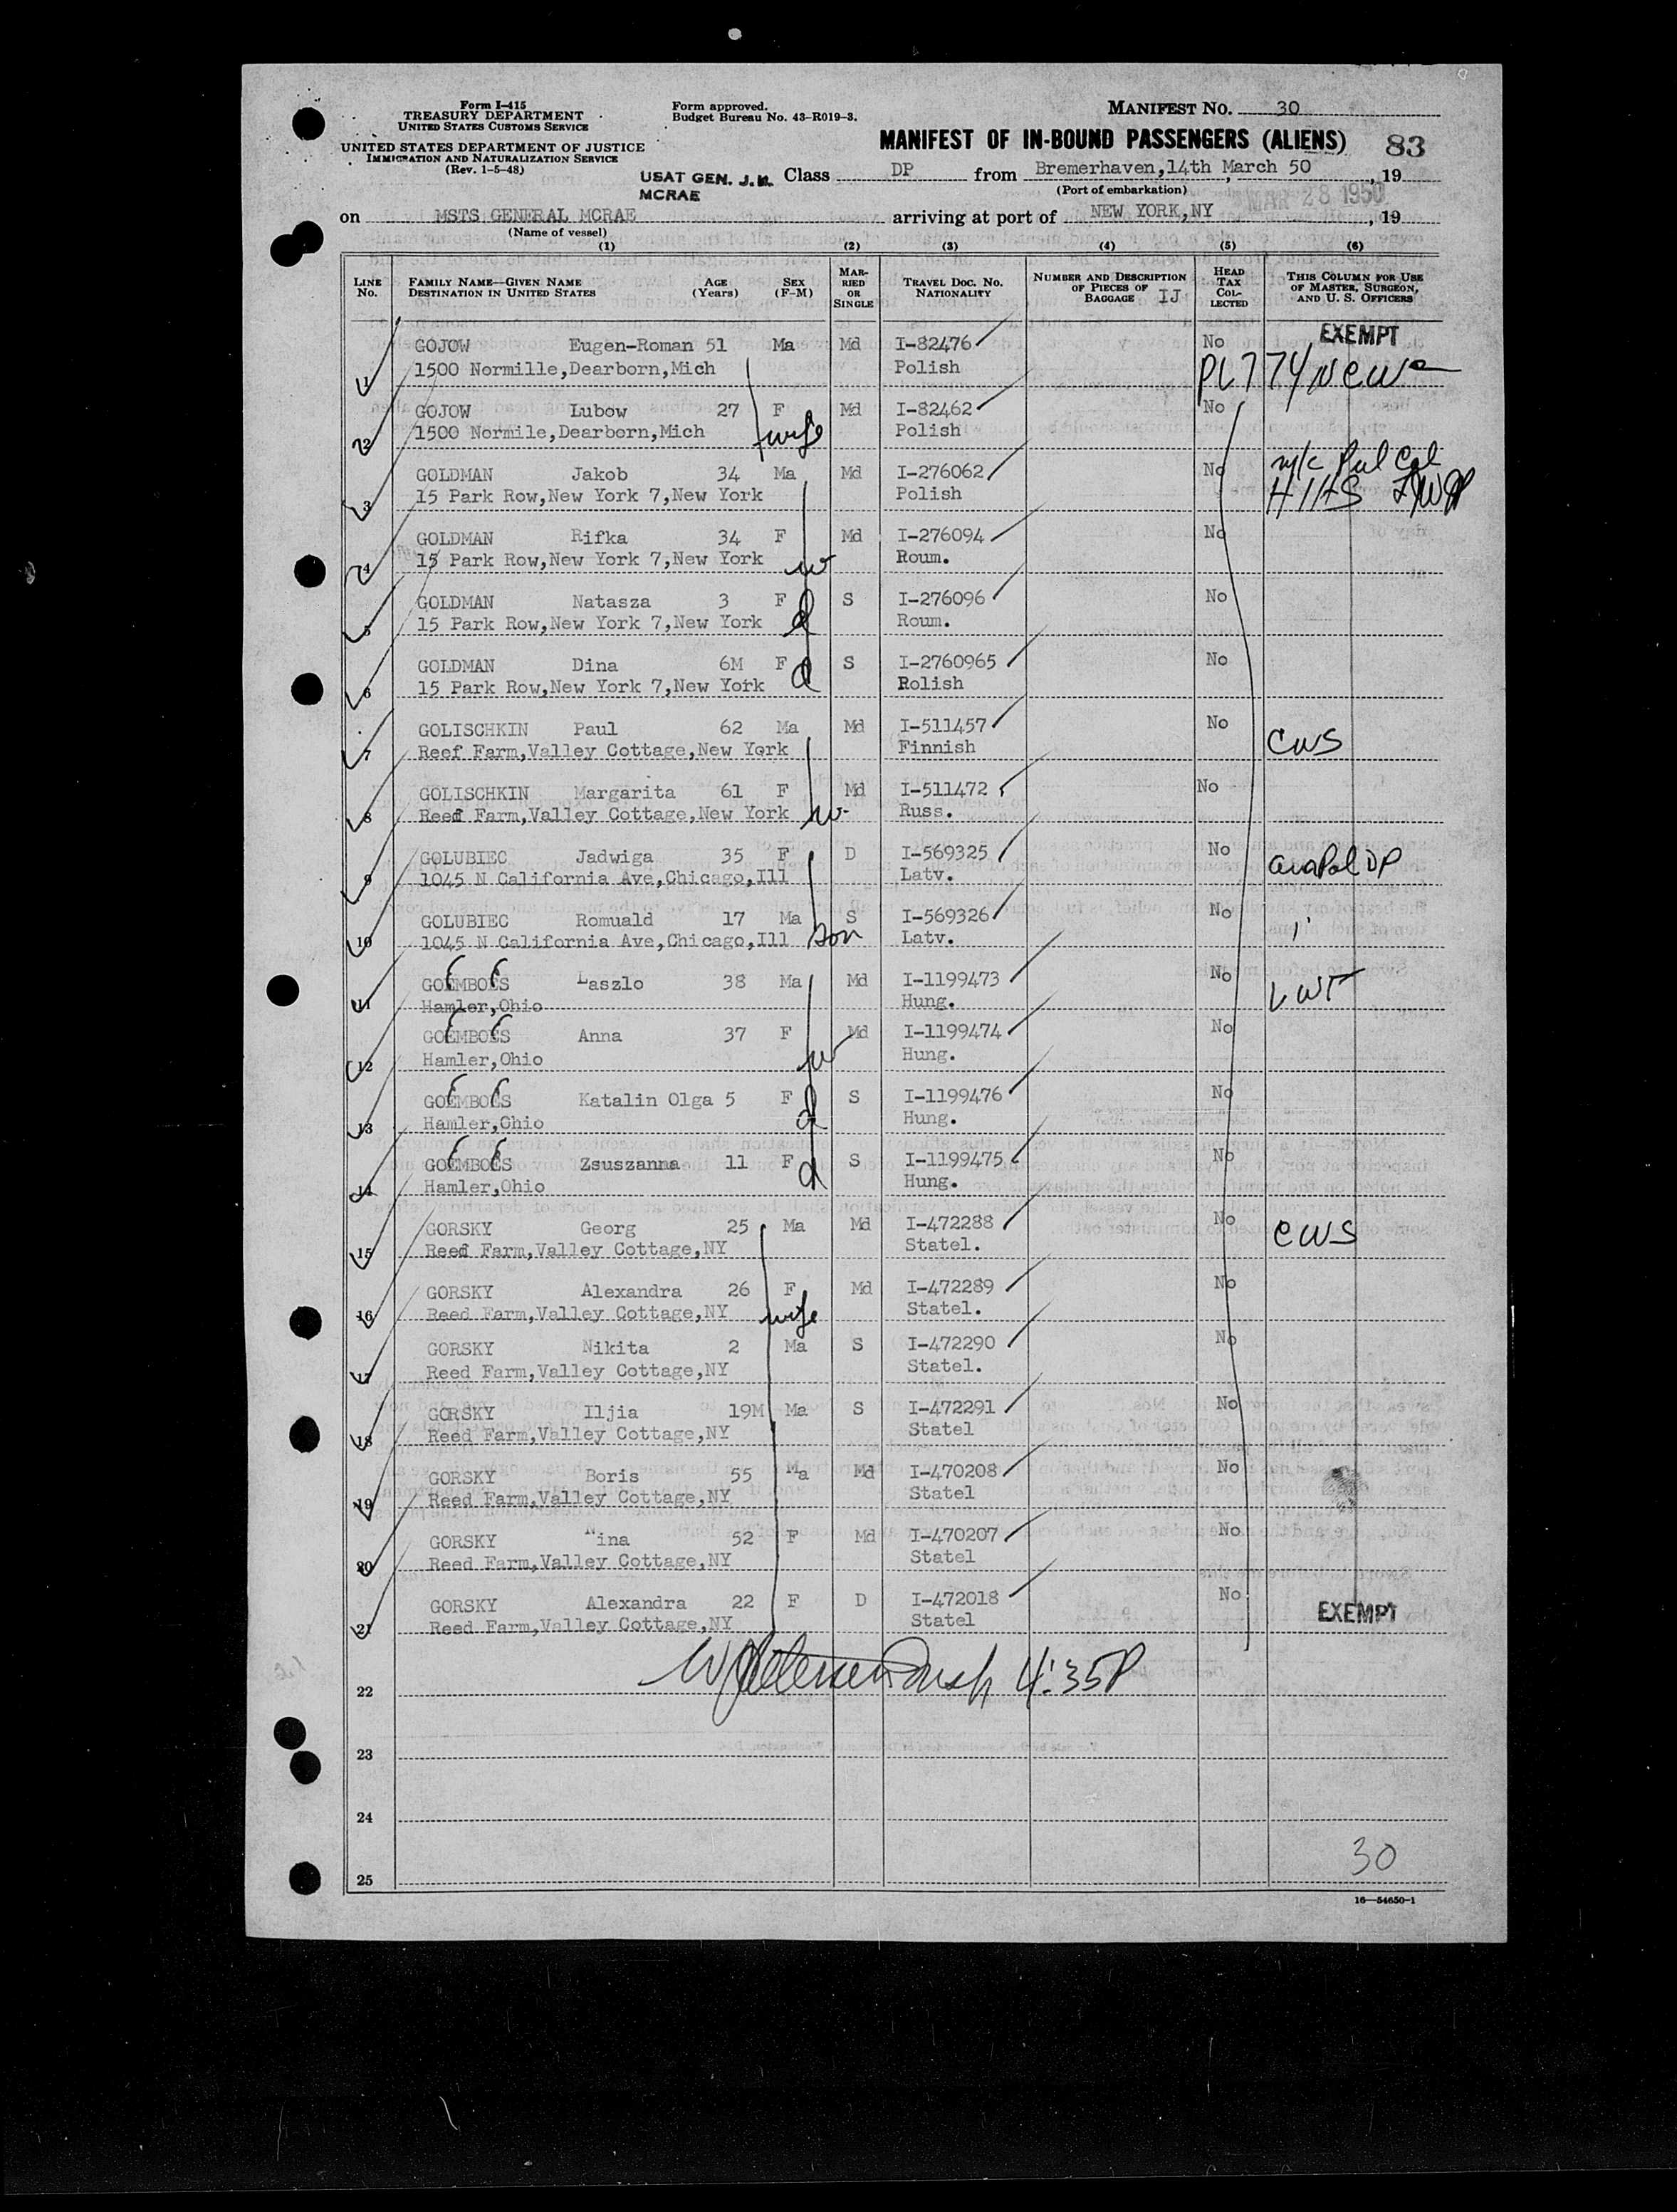 Form I-415
TREASURY DEPARTMENT
UNITED STATES CUSTOMS SERVICE
UNITED STATES DEPARTMENT OF JUSTICE
IMMIGRATION AND NATURALIZATION SERVICE
(Rev. 1-5-48)
Form approved.
Budget Bureau No. 43-R019-3.
MANIFEST NO. 30
MANIFEST OF IN-BOUND PASSENGERS (ALIENS) 83
USAT GEN. J.H. MCRAE
Class DP from Bremerhaven,14th March 50, 19
(Port of embarkation)
MAR 28 1950
on MSTS GENERAL MCRAE arriving at port of NEW YORK,NY, 19
(Name of vessel)
(1) (2) (3) (4) (5) (6)
LINE No. FAMILY NAME—GIVEN NAME DESTINATION IN UNITED STATES AGE (Years) SEX (F-M) MARRIED OR SINGLE TRAVEL DOC. NO. NATIONALITY NUMBER AND DESCRIPTION OF PIECES OF BAGGAGE IJ HEAD TAX COLLECTED THIS COLUMN FOR USE OF MASTER, SURGEON, AND U. S. OFFICERS
EXEMPT
1 GOJOW Eugen-Roman 51 Ma Md I-82476 No
1500 Normille,Dearborn,Mich Polish PL774 NCWC
2 GOJOW Lubow 27 F Md I-82462 No
1500 Normile,Dearborn,Mich wife Polish
3 GOLDMAN Jakob 34 Ma Md I-276062 No
15 Park Row,New York 7,New York Polish HIAS
4 GOLDMAN Rifka 34 F Md I-276094 No
15 Park Row,New York 7,New York w Roum.
5 GOLDMAN Natasza 3 F d S I-276096 No
15 Park Row,New York 7,New York Roum.
6 GOLDMAN Dina 6M F d S I-2760965 No
15 Park Row,New York 7,New York Polish
7 GOLISCHKIN Paul 62 Ma Md I-511457 No
Reef Farm,Valley Cottage,New York Finnish CWS
8 GOLISCHKIN Margarita 61 F Md I-511472 No
Reed Farm,Valley Cottage,New York w Russ.
9 GOLUBIEC Jadwiga 35 F D I-569325 No
1045 N California Ave,Chicago,Ill Latv.
10 GOLUBIEC Romuald 17 Ma S I-569326 No
1045 N California Ave,Chicago,Ill son Latv.
11 GOEMBOES Laszlo 38 Ma Md I-1199473 No
Hamler,Ohio Hung. LWF
12 GOEMBOES Anna 37 F Md I-1199474 No
Hamler,Ohio w Hung.
13 GOEMBOES Katalin Olga 5 F S I-1199476 No
Hamler,Ohio d Hung.
14 GOEMBOES Zsuszanna 11 F d S I-1199475 No
Hamler,Ohio Hung.
15 GORSKY Georg 25 Ma Md I-472288 No
Reed Farm,Valley Cottage,NY Statel. CWS
16 GORSKY Alexandra 26 F Md I-472289 No
Reed Farm,Valley Cottage,NY wife Statel.
17 GORSKY Nikita 2 Ma S I-472290 No
Reed Farm,Valley Cottage,NY Statel.
18 GORSKY Iljia 19M Ma S I-472291 No
Reed Farm,Valley Cottage,NY Statel
19 GORSKY Boris 55 Ma Md I-470208 No
Reed Farm,Valley Cottage,NY Statel
20 GORSKY Nina 52 F Md I-470207 No
Reed Farm,Valley Cottage,NY Statel
21 GORSKY Alexandra 22 F D I-472018 No
Reed Farm,Valley Cottage,NY Statel EXEMPT
4:35P
22
23
24
30
25
16—54650-1